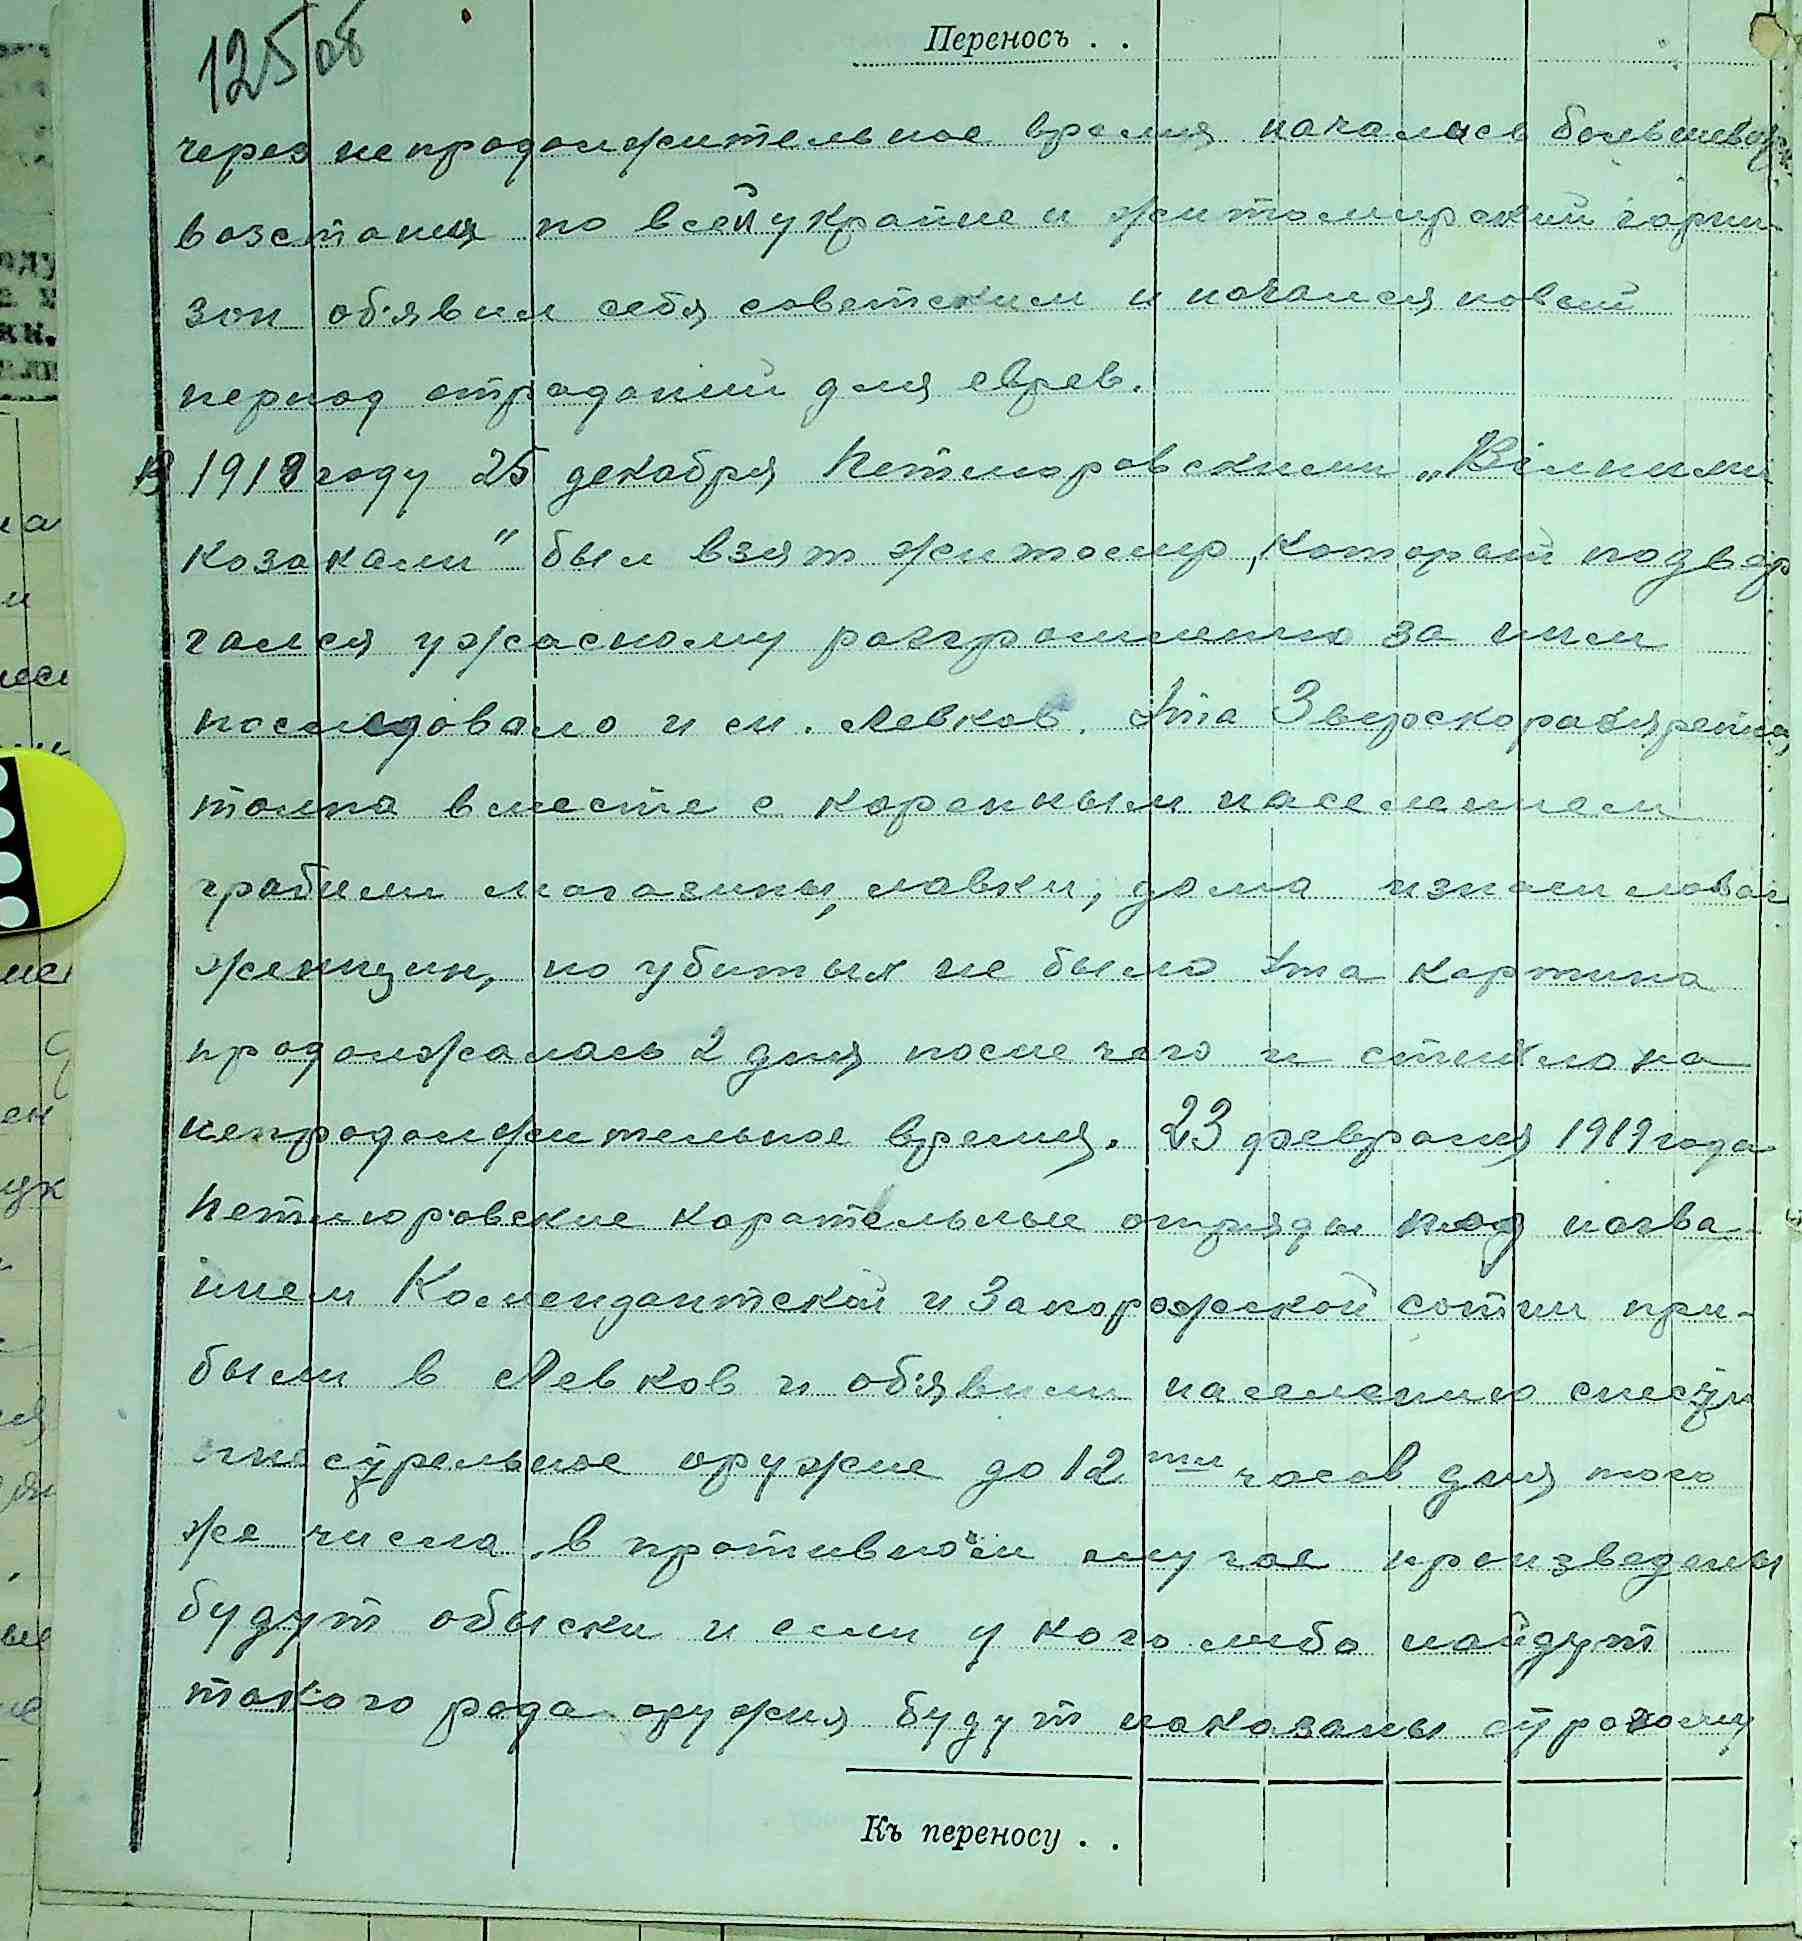 125 об
Переносъ . .
через непродолжительное время начались большевицк
возстания по всей украине и житомирский гарни
зон об'явил себя советским и начался новый
период страданий для еврев.
В 1918 году 25 декабря Петлюровскими „Вiлними
козаками" был взят житомир, который подвер
гался ужасному разгромлению за ним
последовало и м. Левков. Эта Зверскоразярена
толпа вместе с коренным населением
грабили магазины, лавки, дома изнасиловал
женщин, но убитых не было Эта картина
продолжалась 2 дня после чего и стихло на
непродолжительное время. 23 февраля 1919 года
Петлюровские карательные отряды под назва-
нием Комендантской и Запорожской сотни при-
были в Левков и об'явили населению снести
огнестрельное оружие до 12ти часов дня того
же числа, в противном случае произведены
будут обыски и если у кого либо найдут
такого рода оружия будут наказаны строгому
Къ переносу . .